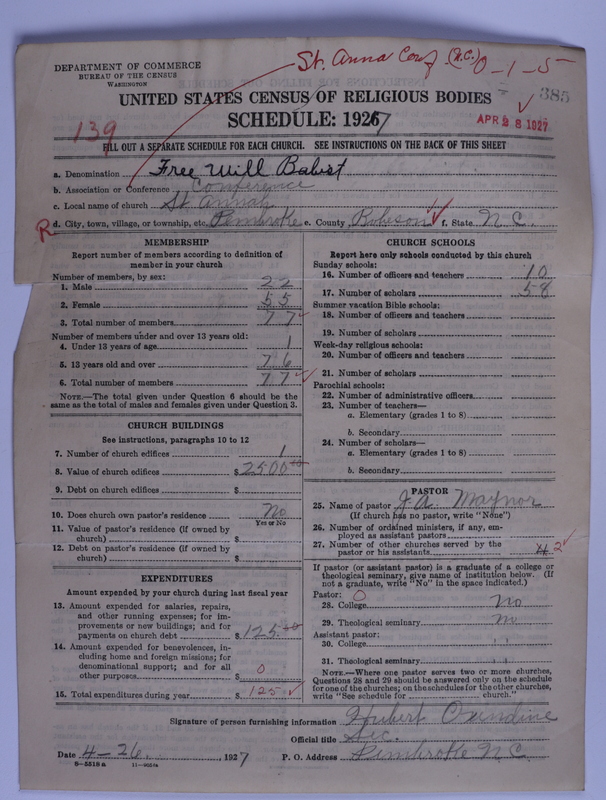 St. Anna Conf (N.C.) 0-1-5-
DEPARTMENT OF COMMERCE
BUREAU OF THE CENSUS
WASHINGTON
385
UNITED STATES CENSUS OF RELIGIOUS BODIES
SCHEDULE: 1926 7
APR 28 1927
139
FILL OUT A SEPARATE SCHEDULE FOR EACH CHURCH. SEE INSTRUCTIONS ON THE BACK OF THIS SHEET
a. Denomination Free Will Babist
b. Association or Conference Conference
c. Local name of church St Annah
R d. City, town, village, or township, etc. Pembroke e. County Robeson f. State N.C.
MEMBERSHIP
Report number of members according to definition of
member in your church
Number of members, by sex:
1. Male 22
2. Female 55
3. Total number of members 77
Number of members under and over 13 years old:
4. Under 13 years of age 1
5. 13 years old and over 76
6. Total number of members 77
NOTE.—The total given under Question 6 should be the
same as the total of males and females given under Question 3.
CHURCH BUILDINGS
See instructions, paragraphs 10 to 12
7. Number of church edifices 1
8. Value of church edifices $ 2500.00
9. Debt on church edifices $
10. Does church own pastor's residence No
Yes or No
11. Value of pastor's residence (if owned by
church) $
12. Debt on pastor's residence (if owned by
church) $
EXPENDITURES
Amount expended by your church during last fiscal year
13. Amount expended for salaries, repairs,
and other running expenses; for im-
provements or new buildings; and for
payments on church debt $ 125.00
14. Amount expended for benevolences, in-
cluding home and foreign missions; for
denominational support; and for all
other purposes $ 0
15. Total expenditures during year $ 125
CHURCH SCHOOLS
Report here only schools conducted by this church
Sunday schools:
16. Number of officers and teachers 10
17. Number of scholars 58
Summer vacation Bible schools:
18. Number of officers and teachers
19. Number of scholars
Week-day religious schools:
20. Number of officers and teachers
21. Number of scholars
Parochial schools:
22. Number of administrative officers
23. Number of teachers—
a. Elementary (grades 1 to 8)
b. Secondary
24. Number of scholars—
a. Elementary (grades 1 to 8)
b. Secondary
PASTOR
25. Name of pastor J.A. Maynor
(If church has no pastor, write "None")
26. Number of ordained ministers, if any, em-
ployed as assistant pastors
27. Number of other churches served by the
pastor or his assistants 4 2
If pastor (or assistant pastor) is a graduate of a college or
theological seminary, give name of institution below. (If
not a graduate, write "No" in the space indicated.)
Pastor: 0
28. College No
29. Theological seminary No
Assistant pastor:
30. College " "
31. Theological seminary " "
NOTE.—Where one pastor serves two or more churches,
Questions 28 and 29 should be answered only on the schedule
for one of the churches; on the schedules for the other churches,
write "See schedule for church."
Signature of person furnishing information Hubert Oxindine
Official title Sec.
Date 4-26, 1927 P. O. Address Pembroke N C
8-5518 a